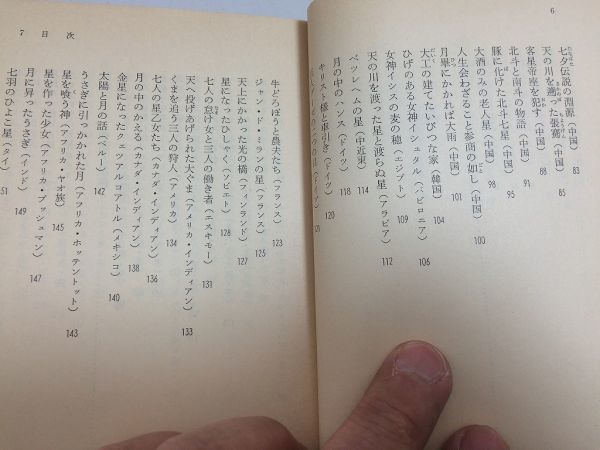 6
七夕伝説の淵源（中国） 83
天の川を遡った張騫（中国） 85
客星帝座を犯す（中国） 88
北斗と南斗の物語（中国） 91
豚に化けた北斗七星（中国） 95
大酒のみの老人星（中国） 98
人生会わざること参商の如し（中国） 100
月畢にかかれば大雨（中国） 101
大工の建てたいびつな家（韓国） 104
ひげのある女神イシュタル（バビロニア） 106
女神イシスの麦の穂（エジプト） 109
天の川を渡った星と渡らぬ星（アラビア） 112
ベツレヘムの星（中近東） 114
月の中のハンス（ドイツ） 118
キリスト様と車引き（ドイツ） 120
7 目次
牛どろぼうと農夫たち（フランス） 123
ジャン・ド・ミランの星（フランス） 125
天上にかかった光の橋（フィンランド） 127
星になったひしゃく（ソビエト） 128
七人の怠け女と三人の働き者（エスキモー） 131
天へ投げあげられた大ぐま（アメリカ・インディアン） 133
くまを追う三人の狩人（アメリカ） 134
七人の星乙女たち（カナダ・インディアン） 136
月の中のかえる（カナダ・インディアン） 138
金星になったケツァルコアトル（メキシコ） 140
太陽と月の話（ペルー） 142
うさぎに引っかかれた月（アフリカ・ホッテントット） 143
星を喰う神（アフリカ・ヤオ族） 145
星を作った少女（アフリカ・ブッシュマン） 147
月に昇ったうさぎ（インド） 149
七羽のひよこ星（タイ） 151